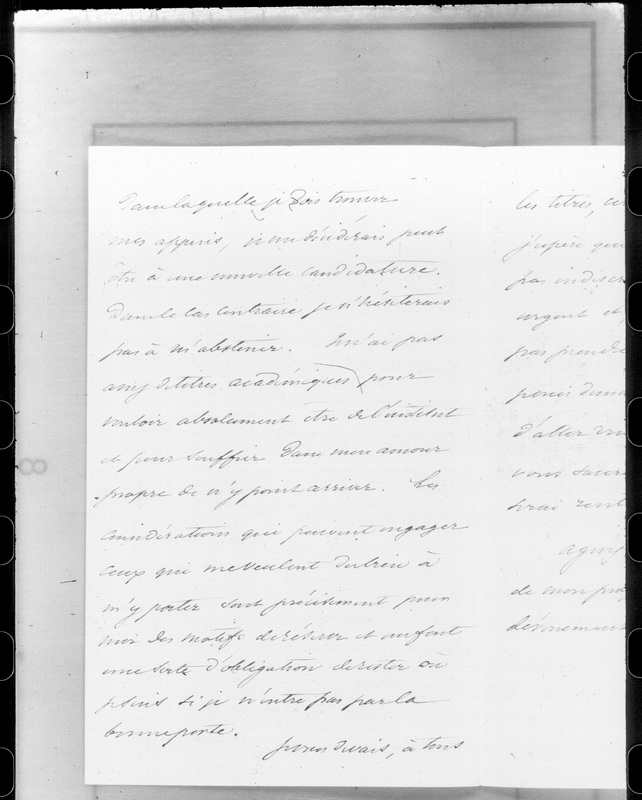 dans laquelle je dois trouver
mes appuis, je me déciderais peut
être à une nouvelle candidature.
Dans le cas contraire je n'hésiterais
pas à m'abstenir. Je n'ai pas
assez de titres académiques pour
vouloir absolument être de l'institut
et pour souffrir dans mon amour
propre de n'y point arriver. Les
considérations qui peuvent engager
ceux qui me veulent du bien à
m'y porter sont précisément pour
moi des motifs de réserve et me font
une sorte d'obligation de rester où
je suis si je n'entre pas par la
bonne porte.
je vous devais, à tous
les titres,
j'espère que
pas indiscr
urgent et
pas prendre
d'aller
vous
serai
agréez
de mon
dévouement